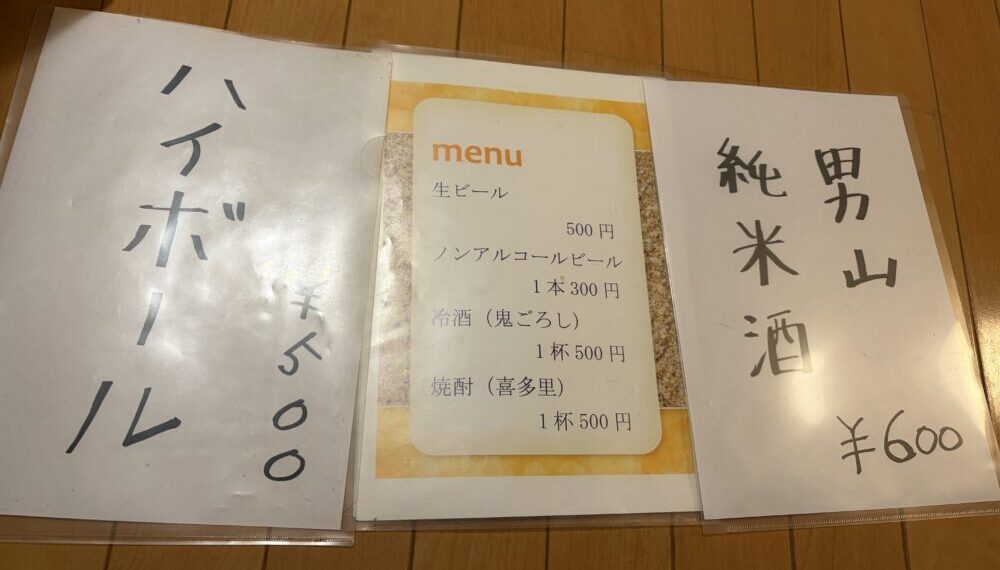 ハイボール
¥500
menu
生ビール
500円
ノンアルコールビール
1本300円
冷酒（鬼ごろし）
1杯500円
焼酎（喜多里）
1杯500円
男山
純米酒
¥600